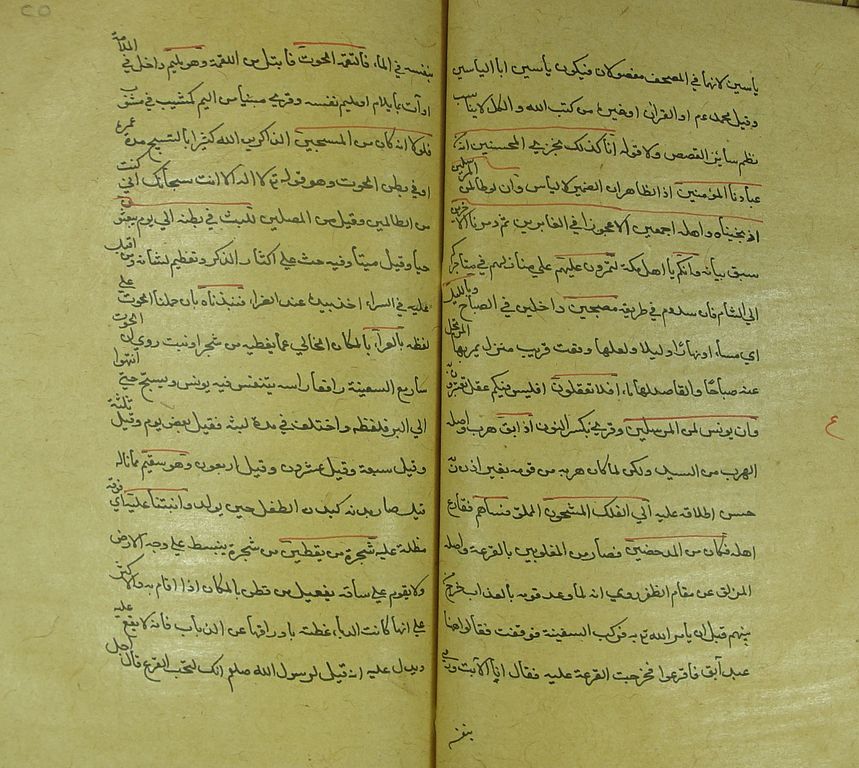 ياسين لانهما في المصحف مفصولان فيكون ياسين ابا الياسين
وقيل محمد عم او القرآن او غيره من كتب الله والكل لا يناسب
نظم سائر القصص ولا قوله انا كذلك نجزي المحسنين انه من
عبادنا المؤمنين اذ الظاهر ان الضمير لالياس وان لوطا لمن المرسلين
اذ نجيناه واهله اجمعين الا عجوزا في الغابرين ثم دمرنا الاخرين
سبق بيانه وانكم يا اهل مكة لتمرون عليهم على منازلهم في متاجركم
الى الشام فان سدوم في طريقه مصبحين داخلين في الصباح وبالليل
اي مساء او نهارا وليلا ولعلها وقعت قريب منزل يمر بها المرتحل
عنه صباحا والقاصد لها مساء افلا تعقلون افليس فيكم عقل تعتبرون
وان يونس لمن المرسلين وقرئ بكسر النون اذ ابق هرب واصله
الهرب من السيد ولكن لما كان هربه من قومه بغير اذن ربه
حسن اطلاقه عليه الى الفلك المشحون المملو فساهم فقارع
اهله فكان من المدحضين فصار من المغلوبين بالقرعة واصله
المزلق عن مقام الظفر روي انه لما وعد قومه بالعذاب خرج من
بينهم قبل ان يامر الله تع به فركب السفينة فوقفت فقالوا هنا
عبد آبق فاقرعوا فخرجت القرعة عليه فقال انا الآبق ورمى
بنفسه
ع
بنفسه في الماء فالتقمه الحوت فابتلعه من اللقمة وهو مليم داخل في الملامة
او آت بما يلام او مليم نفسه وقرئ مبنيا من ليم كمشيب في مشوب
فلولا انه كان من المسبحين الذاكرين الله كثيرا بالتسبيح مدة عمره
او في بطن الحوت وهو قوله تع لا اله الا انت سبحانك اني كنت
من الظالمين وقيل من المصلين للبث في بطنه الى يوم يبعثون
حيا وقيل ميتا وفيه حث على اكثار الذكر وتعظيم لشانه ومن اقبل
عليه في السراء اخذ بيده عند الضراء فنبذناه بان حملنا الحوت على
لفظه بالعراء بالمكان الخالي عما يغطيه من شجر او نبت روي ان الحوت
سار مع السفينة رافعا راسه يتنفس فيه يونس ويسبح حتى انتهوا
الى البر فلفظه واختلف في مدة لبثه فقيل بعض يوم وقيل ثلثة
وقيل سبعة وقيل عشرون وقيل اربعون وهو سقيم مما ناله
قيل صار بدنه كبدن الطفل حين يولد وانبتنا عليه اي فوقه
مظلة عليه شجرة من يقطين من شجرة ينبسط على وجه الارض
ولا يقوم على ساقه يفعيل من قطن بالمكان اذا اقام به والاكثر
على انها كانت الدباء غطته باوراقها عن الذباب فانه لا يقع عليه
ويدل عليه انه قيل لرسول الله صلعم انك لتحب القرع قال اجل